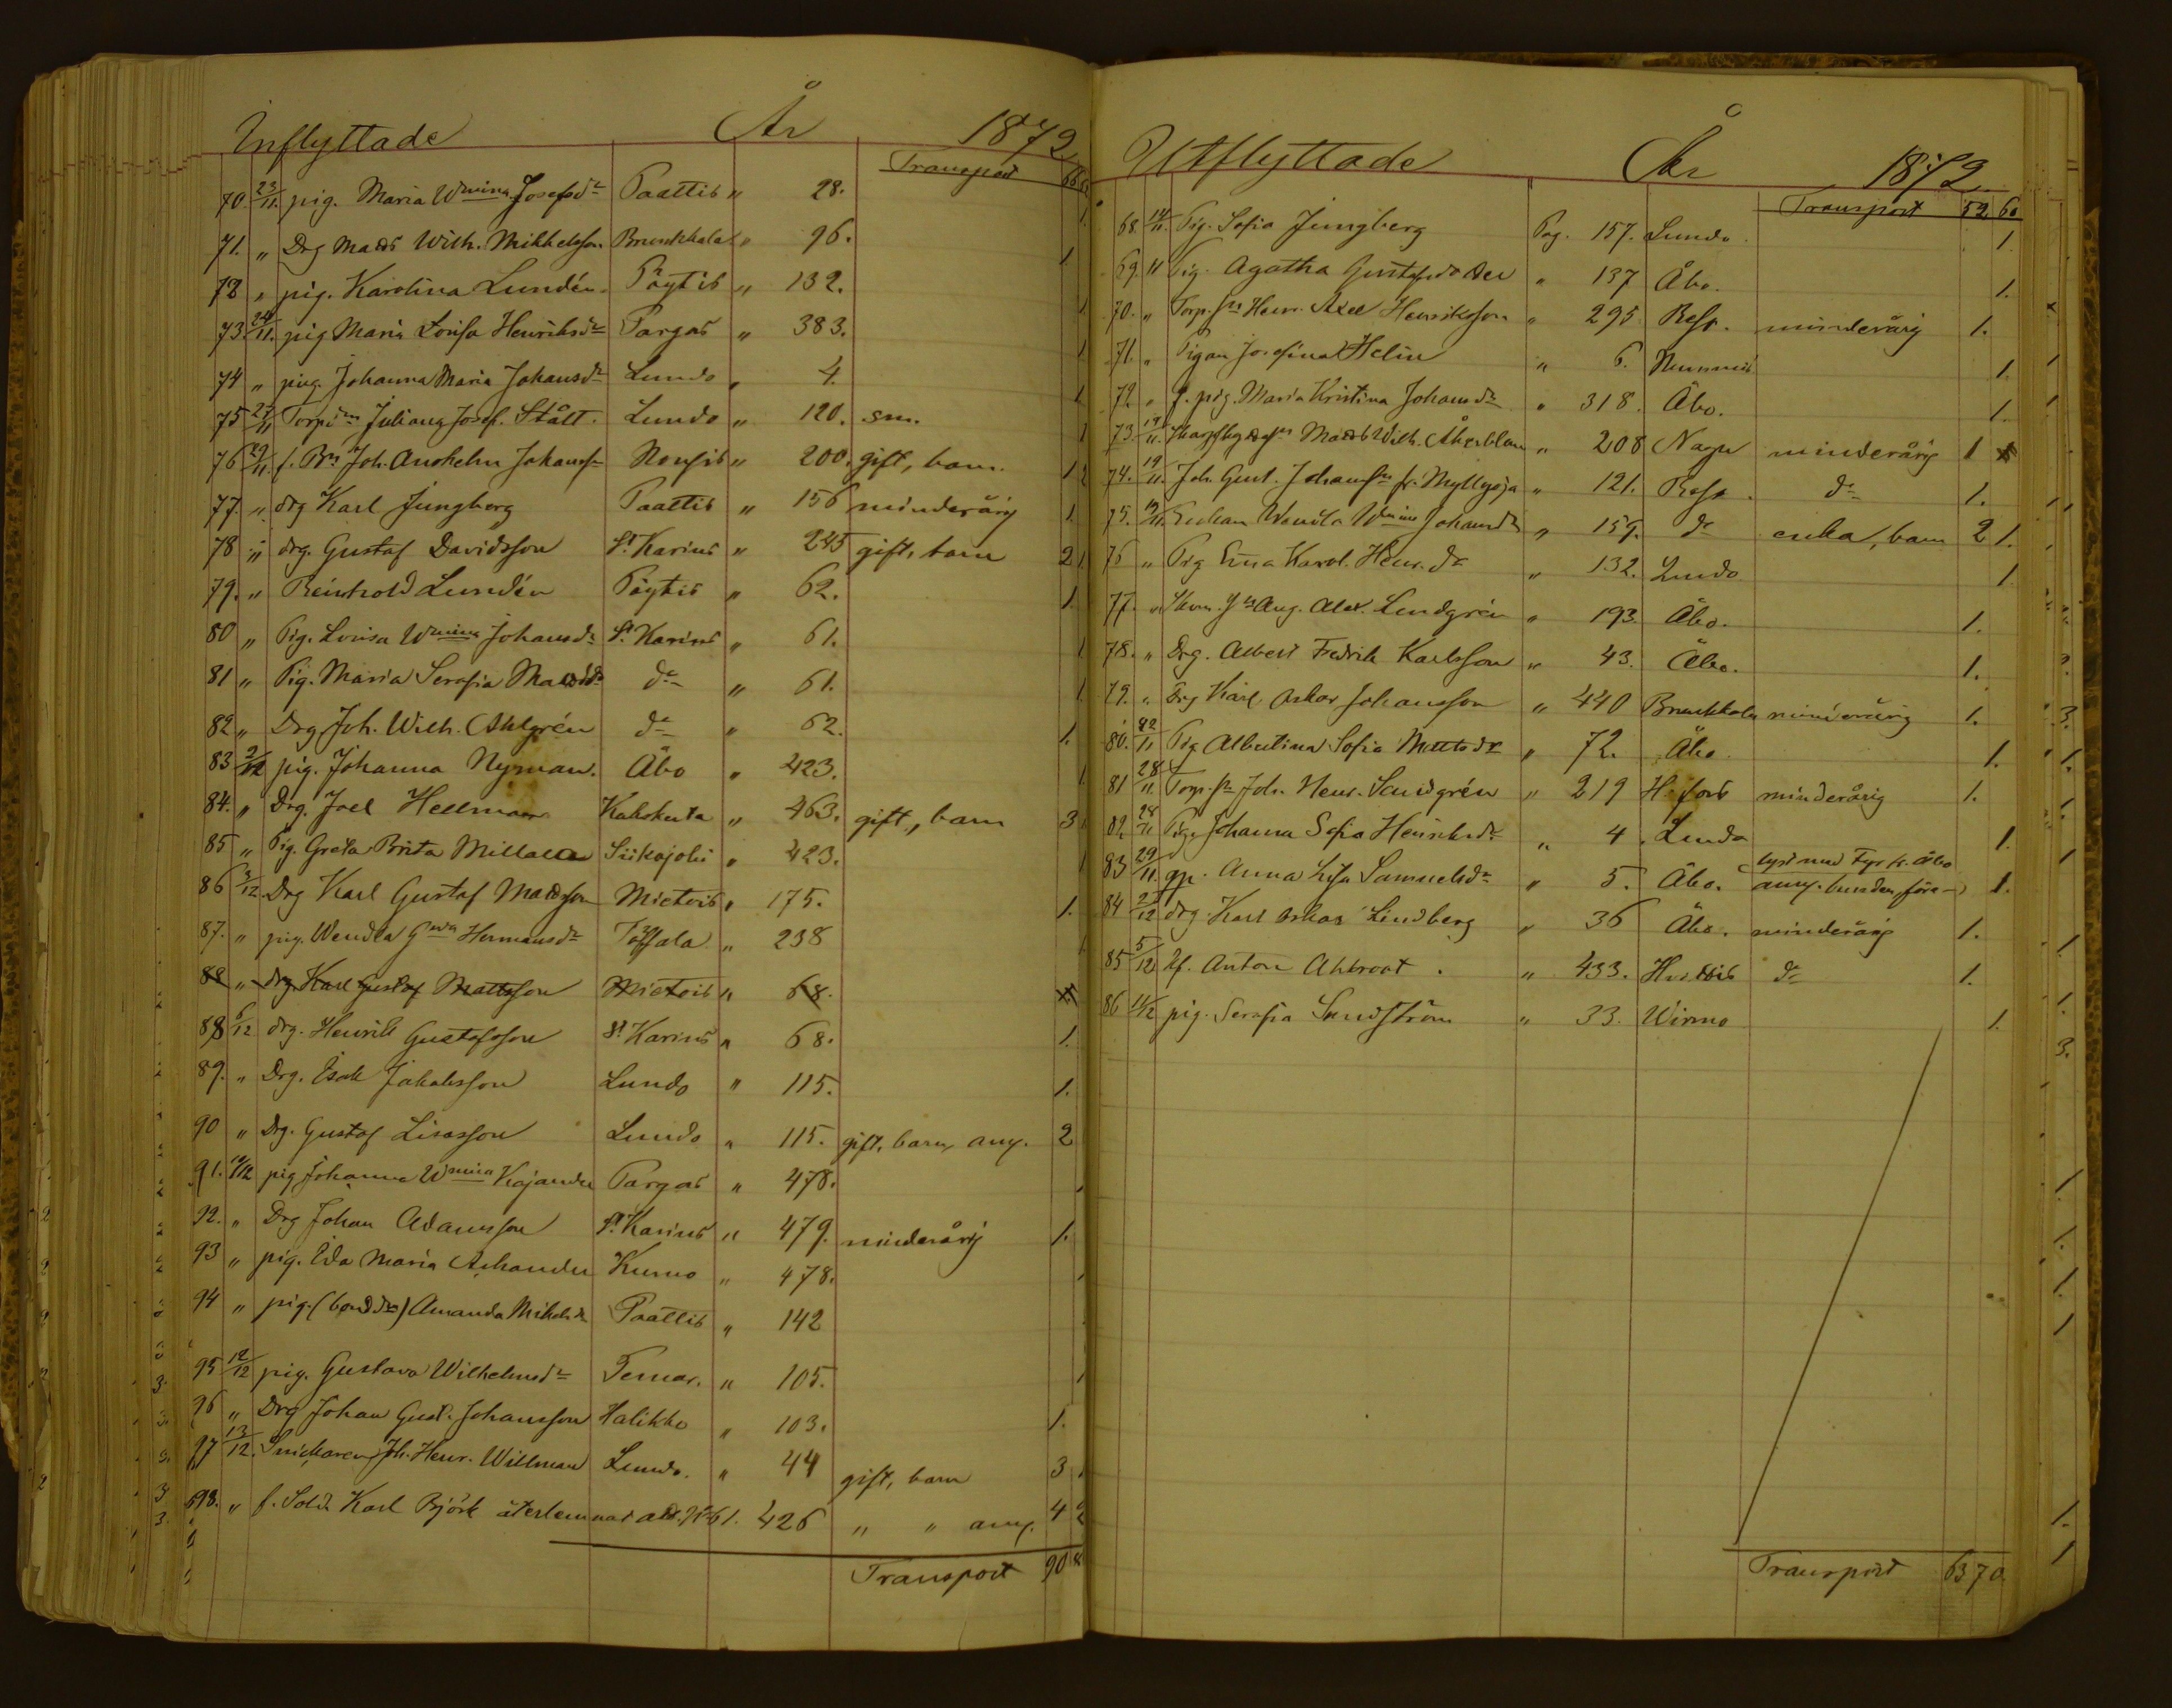 Inflyttade År 1872
Transport
70. 23/11. pig. Maria Wmina Josefsdr Paattis " 28.
71. " Drg Mats Wilh. Mikkelsson Brunkkala " 96. 1.
72 " pig. Karolina Lundén Pöytis " 132.
73. 24/11. pig Maria Lovisa Henriksdr Pargas " 383.
74 " pig. Johanna Maria Johansdr Lundo " 4.
75 27/11 Juliana Josef. Stålt. Lundo " 120. sm.
76 29/11. f. Bn Joh. Anshelm Johansson Nousis " 200. gift, barn. 1
77. " drg Karl Jungberg Paattis " 156 minderårig 1
78 " drg. Gustaf Davidsson St Karins " 245 gift, barn 2
79. " Reinhold Lundén Pöytis " 62. 1
80 " Pig. Lovisa Wmina Johansdr St Karins " 61.
81 " Pig. Maria Serafia Matsdr do " 61.
82 " Drg Joh. Wilh. Ahlgrén do " 62. 1.
83 2/12 pig. Johanna Nyman. Åbo " 423.
84. " Drg. Joel Hellman Kakskerta " 463. gift, barn 3
85 " Pig. Greta Brita Siikajoki " 423.
86 3/12 Drg Karl Gustaf Matsson Mietois " 175. 1.
87. " pig. Wendla Gva Hermansdr Töfsala " 238
88 " drg Karl Gustaf Mattsson Mietois " 68.
88 6/12 drg. Henrik Gustafsson St Karins " 68. 1.
89. " Drg. Isak Jakobsson Lundo " 115. 1.
90 " Drg. Gustaf Lisasson Lundo " 115. gift, barn, amg. 2
91. 10/12 pig Johanna Wmina Kajander Pargas " 478.
92. " Drg Johan Adamsson St Karins " 479. minderårig 1.
93 " pig. Ida Maria Kumo " 478.
94 " pig. (bonddr) Amanda Mikelsdr Paattis " 142
95 12/12 pig. Gustava Wilhelmsdr Pemar. " 105.
96 " Drg Johan Gust. Johansson Halikko " 103. 1.
97 13/12. Snickaren Joh. Henr. Willman Lundo. " 44 gift, barn 3
98. " f. Sold. Karl Björk återlemnat 61. 426 " " amg. 4 2
Transport 90 8
Utflyttade År 1872
Transport 52 60
68. 14/11. Pig. Sofia Jungberg Pag. 157. Lundo. 1
69. 11 Pig. Agatha Gustafsdotter " 137 Åbo. 1.
70. " Torp. sn Henr. Axel Henriksson " 295 Reso. minderårig 1.
71. " Pigan Josefina Helin " 6. Nummis 1.
72. " f. pig. Maria Kristina Johansdr " 318. Åbo. 1.
73. 19/11. Mats Wilh. Åkerblom " 208 Nagu minderårig 1
74. 19/11. Joh. Gust. Johansson fr. Myllyoja " 121. Reso. do 1.
75. 19/11. Enkan Wendla Wmina Johansdr " 159. do enka, barn 2 1.
76 " Pig Erna Karol. Henr. dr " 132. Lundo 1
77. " Aug. Alex. Lindgrén " 193. Åbo. 1.
78. " Drg. Albert Fredrik Karlsson " 43. Åbo. 1.
79. " Drg Karl Oskar Johansson " 440 Brunkkala minderårig 1.
80. 22/11 Pig Albertina Sofia Mattsdr " 72. Åbo 1.
81 28/11. Torp. sn Joh. Henr. Lindgrén " 219 H.fors minderårig 1.
82. 28/11 Pig. Johanna Sofia Henriksdr " 4. Lundo 1.
83 29/11. gp. Anna Lisa Samuelsdr " 5. Åbo. lyst med Fyr fr. Åbo
amg. 1.
84 2/12 drg. Karl Oskar Lindberg " 36 Åbo. minderårig 1.
85 5/12 Anton Ahlroot. " 433. Hvittis do 1.
86 11/12 pig. Serafia Sundström " 33. Wirmo 1.
Transport 63 70